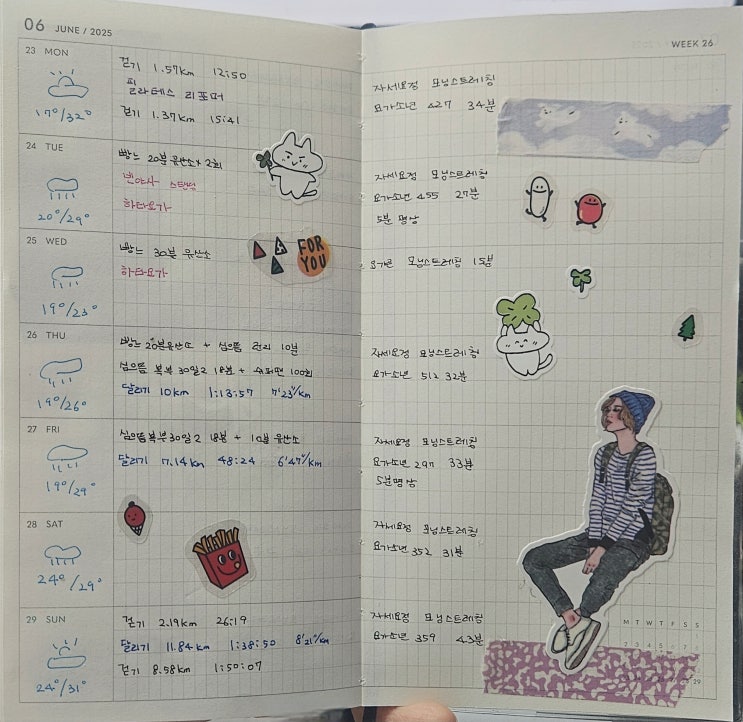 06 JUNE / 2025
23 MON
17°/32°
걷기 1.57km 12:50
필라테스 리포머
걷기 1.37km 15:41
24 TUE
20°/29°
빵느 20분 유산소 x 2회
빈야사 스탠딩
하타요가
25 WED
19°/23°
빵느 30분 유산소
하타요가
FOR YOU
26 THU
19°/26°
빵느 20분 유산소 + 심으뜸 10분
심으뜸 복부 30일2 18분 + 슈퍼맨 100회
달리기 10km 1:13:57 7'23"/km
27 FRI
19°/29°
심으뜸 복부 30일2 18분 + 10분 유산소
달리기 7.14km 48:24 6'47"/km
28 SAT
24°/29°
29 SUN
24°/31°
걷기 2.19km 26:19
달리기 11.84km 1:38:50 8'21"/km
걷기 8.58km 1:50:07
WEEK 26
자세요정 모닝스트레칭
요가소년 427 34분
자세요정 모닝스트레칭
요가소년 455 27분
5분 명상
모닝스트레칭 15분
자세요정 모닝스트레칭
요가소년 512 32분
자세요정 모닝스트레칭
요가소년 297 33분
5분명상
자세요정 모닝스트레칭
요가소년 352 31분
자세요정 모닝스트레칭
요가소년 359 43분
M T W T F S S
29